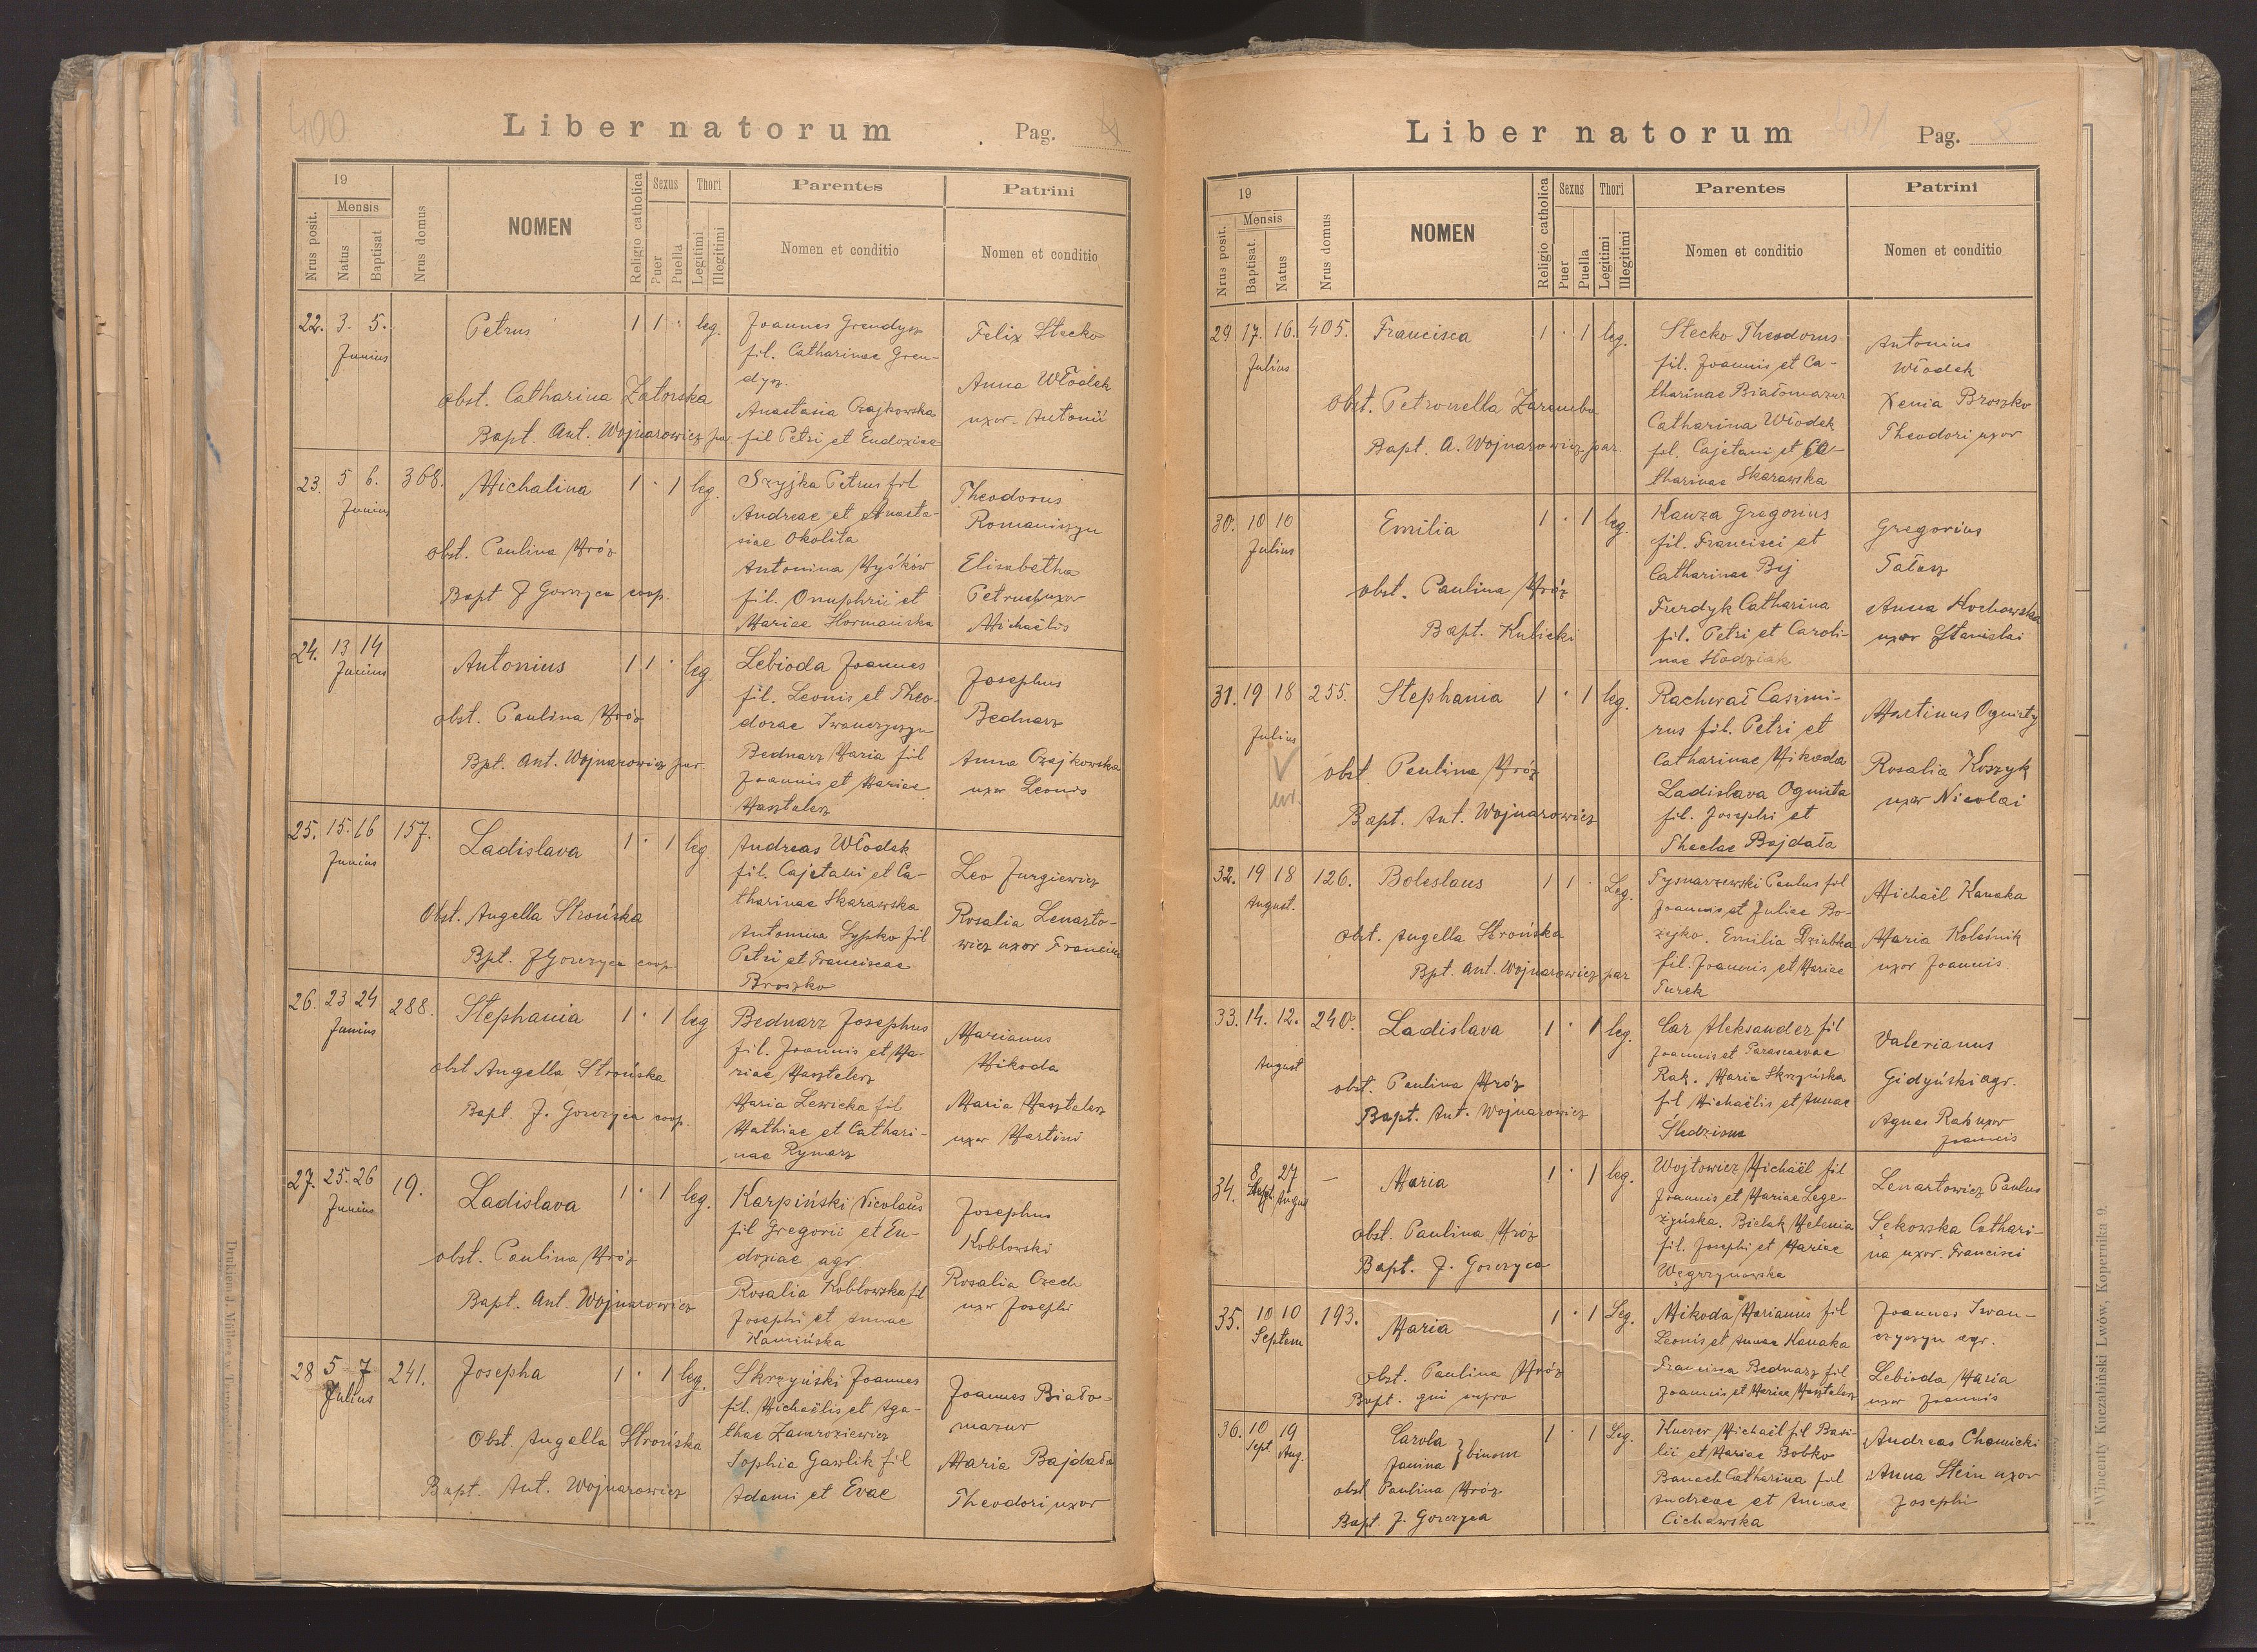 400
Liber natorum
Pag. 4
19
Mensis
Nrus posit.
Natus
Baptisat
Nrus domus
NOMEN
Religio catholica
Sexus
Puer
Puella
Thori
Legitimi
Illegitimi
Parentes
Nomen et conditio
Patrini
Nomen et conditio
22. 3. 5. Junius
Petrus
1 1 · leg.
obst. Catharina Zatorska
Bapt. Ant. Wojnarowicz par.
Joannes Grendysz
fil. Catharinae Gren-
dysz.
Anastasia Czajkowska
fil Petri et Eudoxiae
Felix Stecko
Anna Włodek
uxor Antonii
23. 5 6. Junius 368.
Michalina
1 · 1 leg.
obst. Paulina Mróz
Bapt J Gorczyca coop.
Szyjka Petrus fil
Andreae et Anasta-
siae Okolita
Antonina Myśków
fil. Onuphrii et
Mariae Hormańska
Theodorus
Romaniszyn
Elisabetha
Petruch uxor
Michaëlis
24. 13 14 Junius
Antonius
1 1 · leg
obst. Paulina Mróz
Bpt. Ant. Wojnarowicz par.
Lebioda Joannes
fil. Leonis et Theo-
dorae Iwanczyszyn
Bednarz Maria fil
Joannis et Mariae
Masztalerz
Josephus
Bednarz
Anna Czajkowska
uxor Leonis
25. 15. 16 Junius 157.
Ladislava
1 · 1 leg
Obst. Angella Strońska
Bpt. J Gorczyca coop.
Andreas Włodek
fil. Cajetani et Ca-
tharinae Skarawska
Antonina Łypko fil
Petri et Franciscae
Broszko
Leo Jurgiewicz
Rosalia Lenarto-
wicz uxor Francisci
26. 23 24 Junius 288.
Stephania
1 · 1 leg
obst Angella Strońska
Bapt. J. Gorczyca coop.
Bednarz Josephus
fil. Joannis et Ma-
riae Masztalerz
Maria Lewicka fil
Mathiae et Cathari-
nae Rymarz
Marianus
Mikoda
Maria Masztalerz
uxor Martini
27. 25. 26 Junius 19.
Ladislava
1 · 1 leg.
obst. Paulina Mróz
Bapt. Ant. Wojnarowicz
Karpiński Nicolaus
fil Gregorii et Eu-
doxiae agr
Rosalia Kobłowska fil
Josephi et Annae
Kamińska
Josephus
Kobłowski
Rosalia Czech
uxor Josephi
28 5 7 Julius 241.
Josepha
1 · 1 leg.
Obst. Angella Strońska
Bapt. Ant. Wojnarowicz
Skrzyński Joannes
fil. Michaëlis et Aga-
thae Zamroziewicz
Sophia Gawlik fil
Adami et Evae
Joannes Biało-
mazur
Maria Bajdała
Theodori uxor
Liber natorum
401
Pag. 5
19
Mensis
Nrus posit.
Baptisat.
Natus
Nrus domus
NOMEN
Religio catholica
Sexus
Puer
Puella
Thori
Legitimi
Illegitimi
Parentes
Nomen et conditio
Patrini
Nomen et conditio
29 17. 16. Julius 405.
Francisca
1 · 1 leg.
Obst. Petronella Zaremba
Bapt. A. Wojnarowicz par.
Stecko Theodorus
fil. Joannis et Ca-
tharinae Białomazur
Catharina Włodek
fil. Cajetani et Ca-
tharinae Skarawska
Antonius
Włodek
Xenia Broszko
Theodori uxor
30. 10 10 Julius
Emilia
1 · 1 leg.
obst. Paulina Mróz
Bapt. Kubicki
Hawza Gregorius
fil. Francisci et
Catharinae Bij
Furdyk Catharina
fil. Petri et Caroli-
nae Słodziak
Gregorius
Tałasz
Anna Kochowska
uxor Stanislai
31. 19 18 Julius 255.
Stephania
1 · 1 leg.
obst. Paulina Mróz
Bapt. Ant. Wojnarowicz
Rachwał Casimi-
rus fil. Petri et
Catharinae Mikoda
Ladislava Ognista
fil. Josephi et
Theclae Bajdała
Martinus Ognisty
Rosalia Koszyk
uxor Nicolai
32. 19 18 August. 126.
Boleslaus
1 1 · Leg.
obst. Angella Strońska
Bpt. Ant. Wojnarowicz par
Tysnarzewski Paulus fil
Joannis et Juliae Bo-
zejko. Emilia Dziabka
fil. Joannis et Mariae
Turek
Michaël Kanaka
Maria Koleśnik
uxor Joannis
33. 14. 12. August 240.
Ladislava
1 · 1 leg.
obst. Paulina Mróz
Bapt. Ant. Wojnarowicz
Car Aleksander fil
Joannis et Parascevae
Rak. Maria Skrzyńska
fil Michaëlis et Annae
Śledziona
Valerianus
Gidyński agr.
Agnes Rak uxor
Joannis
34. 8 Sept. 27 August —
Maria
1 · 1 leg.
obst. Paulina Mróz
Bapt. J. Gorczyca
Wojtowicz Michaël fil
Joannis et Mariae Lege-
żyńska. Bielak Helenia
fil. Josephi et Mariae
Węgrzynowska
Lenartowicz Paulus
Sękowska Cathari-
na uxor. Francisci
35. 10 10 Septem 193.
Maria
1 · 1 Leg.
Obst. Paulina Mróz
Bapt. qui supra
Mikoda Marianus fil
Leonis et Annae Kanaka
Francisca Bednarz fil
Joannis et Mariae Masztalerz
Joannes Iwan-
czyszyn agr.
Lebioda Maria
uxor Joannis
36. 10 Sept. 19 Aug.
Carola
Janina } binom
1 · 1 Leg.
obst. Paulina Mróz
Bapt. J. Gorczyca
Kuczer Michaël fil Basi-
lii et Mariae Bobko
Banach Catharina fil
Andreae et Annae
Cichawska
Andreas Chomicki
Anna Stein uxor
Josephi
Wincenty Kuczabiński Lwów, Kopernika 9.